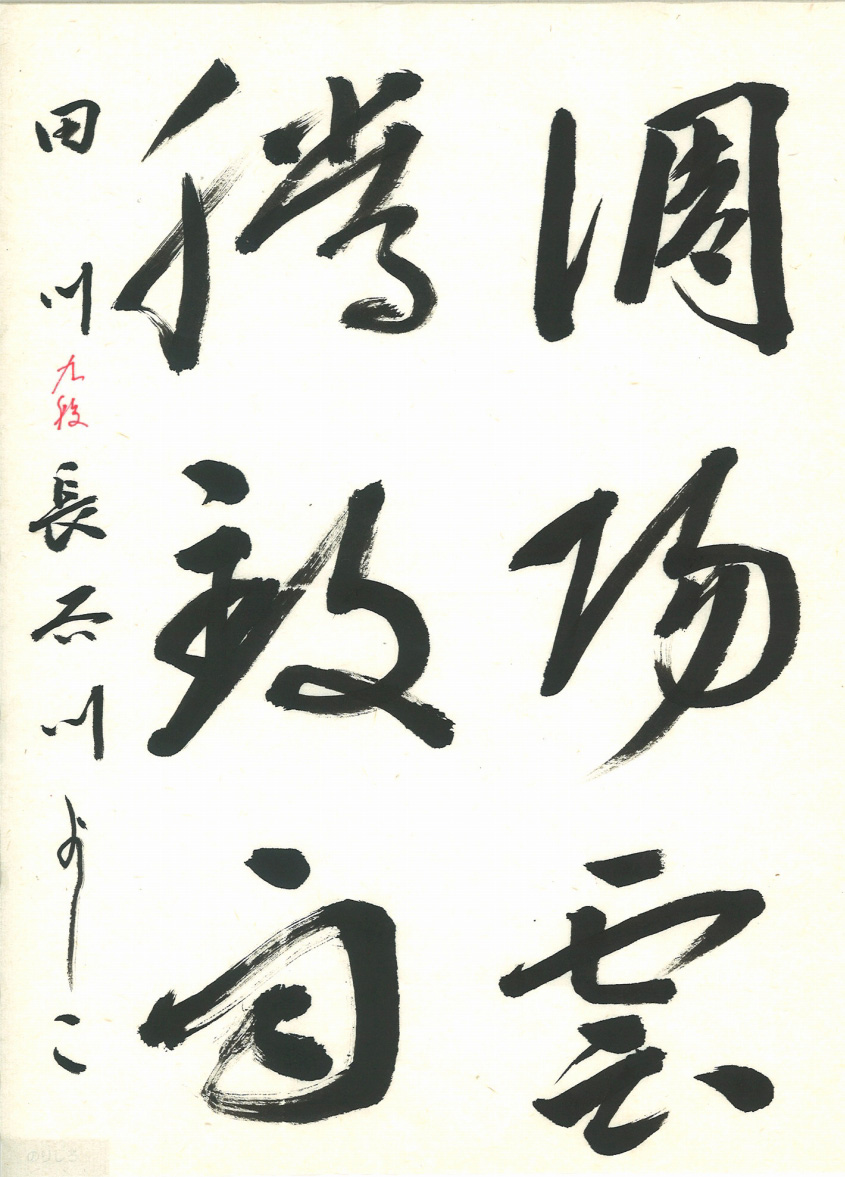 調陽雲
騰致雨
田川 九段 長谷川よしこ
のりしろ